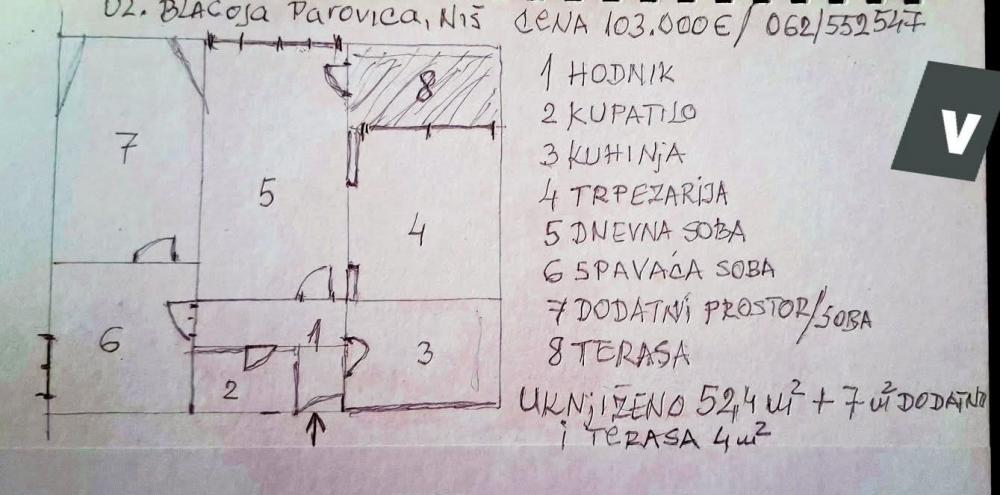 UL. BLAGOJA PAROVIĆA, NIŠ CENA 103.000€/ 062/552547
1 HODNIK
2 KUPATILO
3 KUHINJA
4 TRPEZARIJA
5 DNEVNA SOBA
6 SPAVAĆA SOBA
7 DODATNI PROSTOR/SOBA
8 TERASA
UKNJIŽENO 52,4 m² + 7 m² DODATNO
i TERASA 4 m²
7
5
8
4
6
1
2
3
V